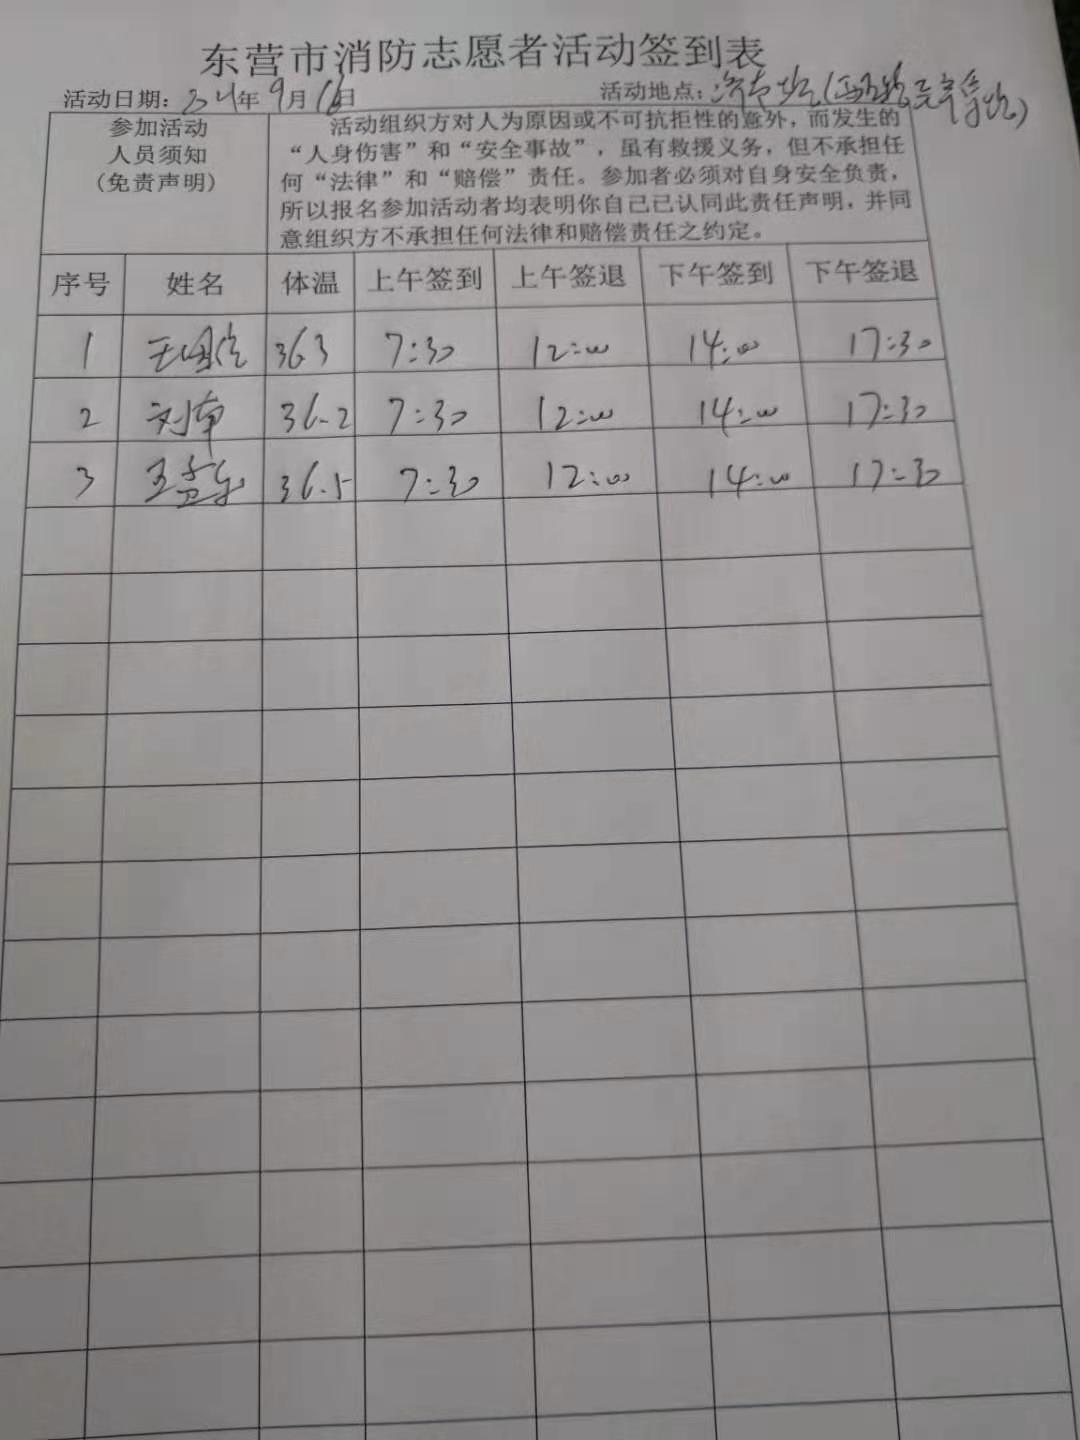 东营市消防志愿者活动签到表
活动日期: 2021年9月16日 活动地点:
参加活动
人员须知
(免责声明)
活动组织方对人为原因或不可抗拒性的意外，而发生的
“人身伤害”和“安全事故”，虽有救援义务，但不承担任
何“法律”和“赔偿”责任。参加者必须对自身安全负责，
所以报名参加活动者均表明你自己已认同此责任声明，并同
意组织方不承担任何法律和赔偿责任之约定。
序号 姓名 体温 上午签到 上午签退 下午签到 下午签退
1 363 7:30 12:00 14:00 17:30
2 刘南 36.2 7:30 12:00 14:00 17:30
3 36.5 7:30 12:00 14:00 17:30